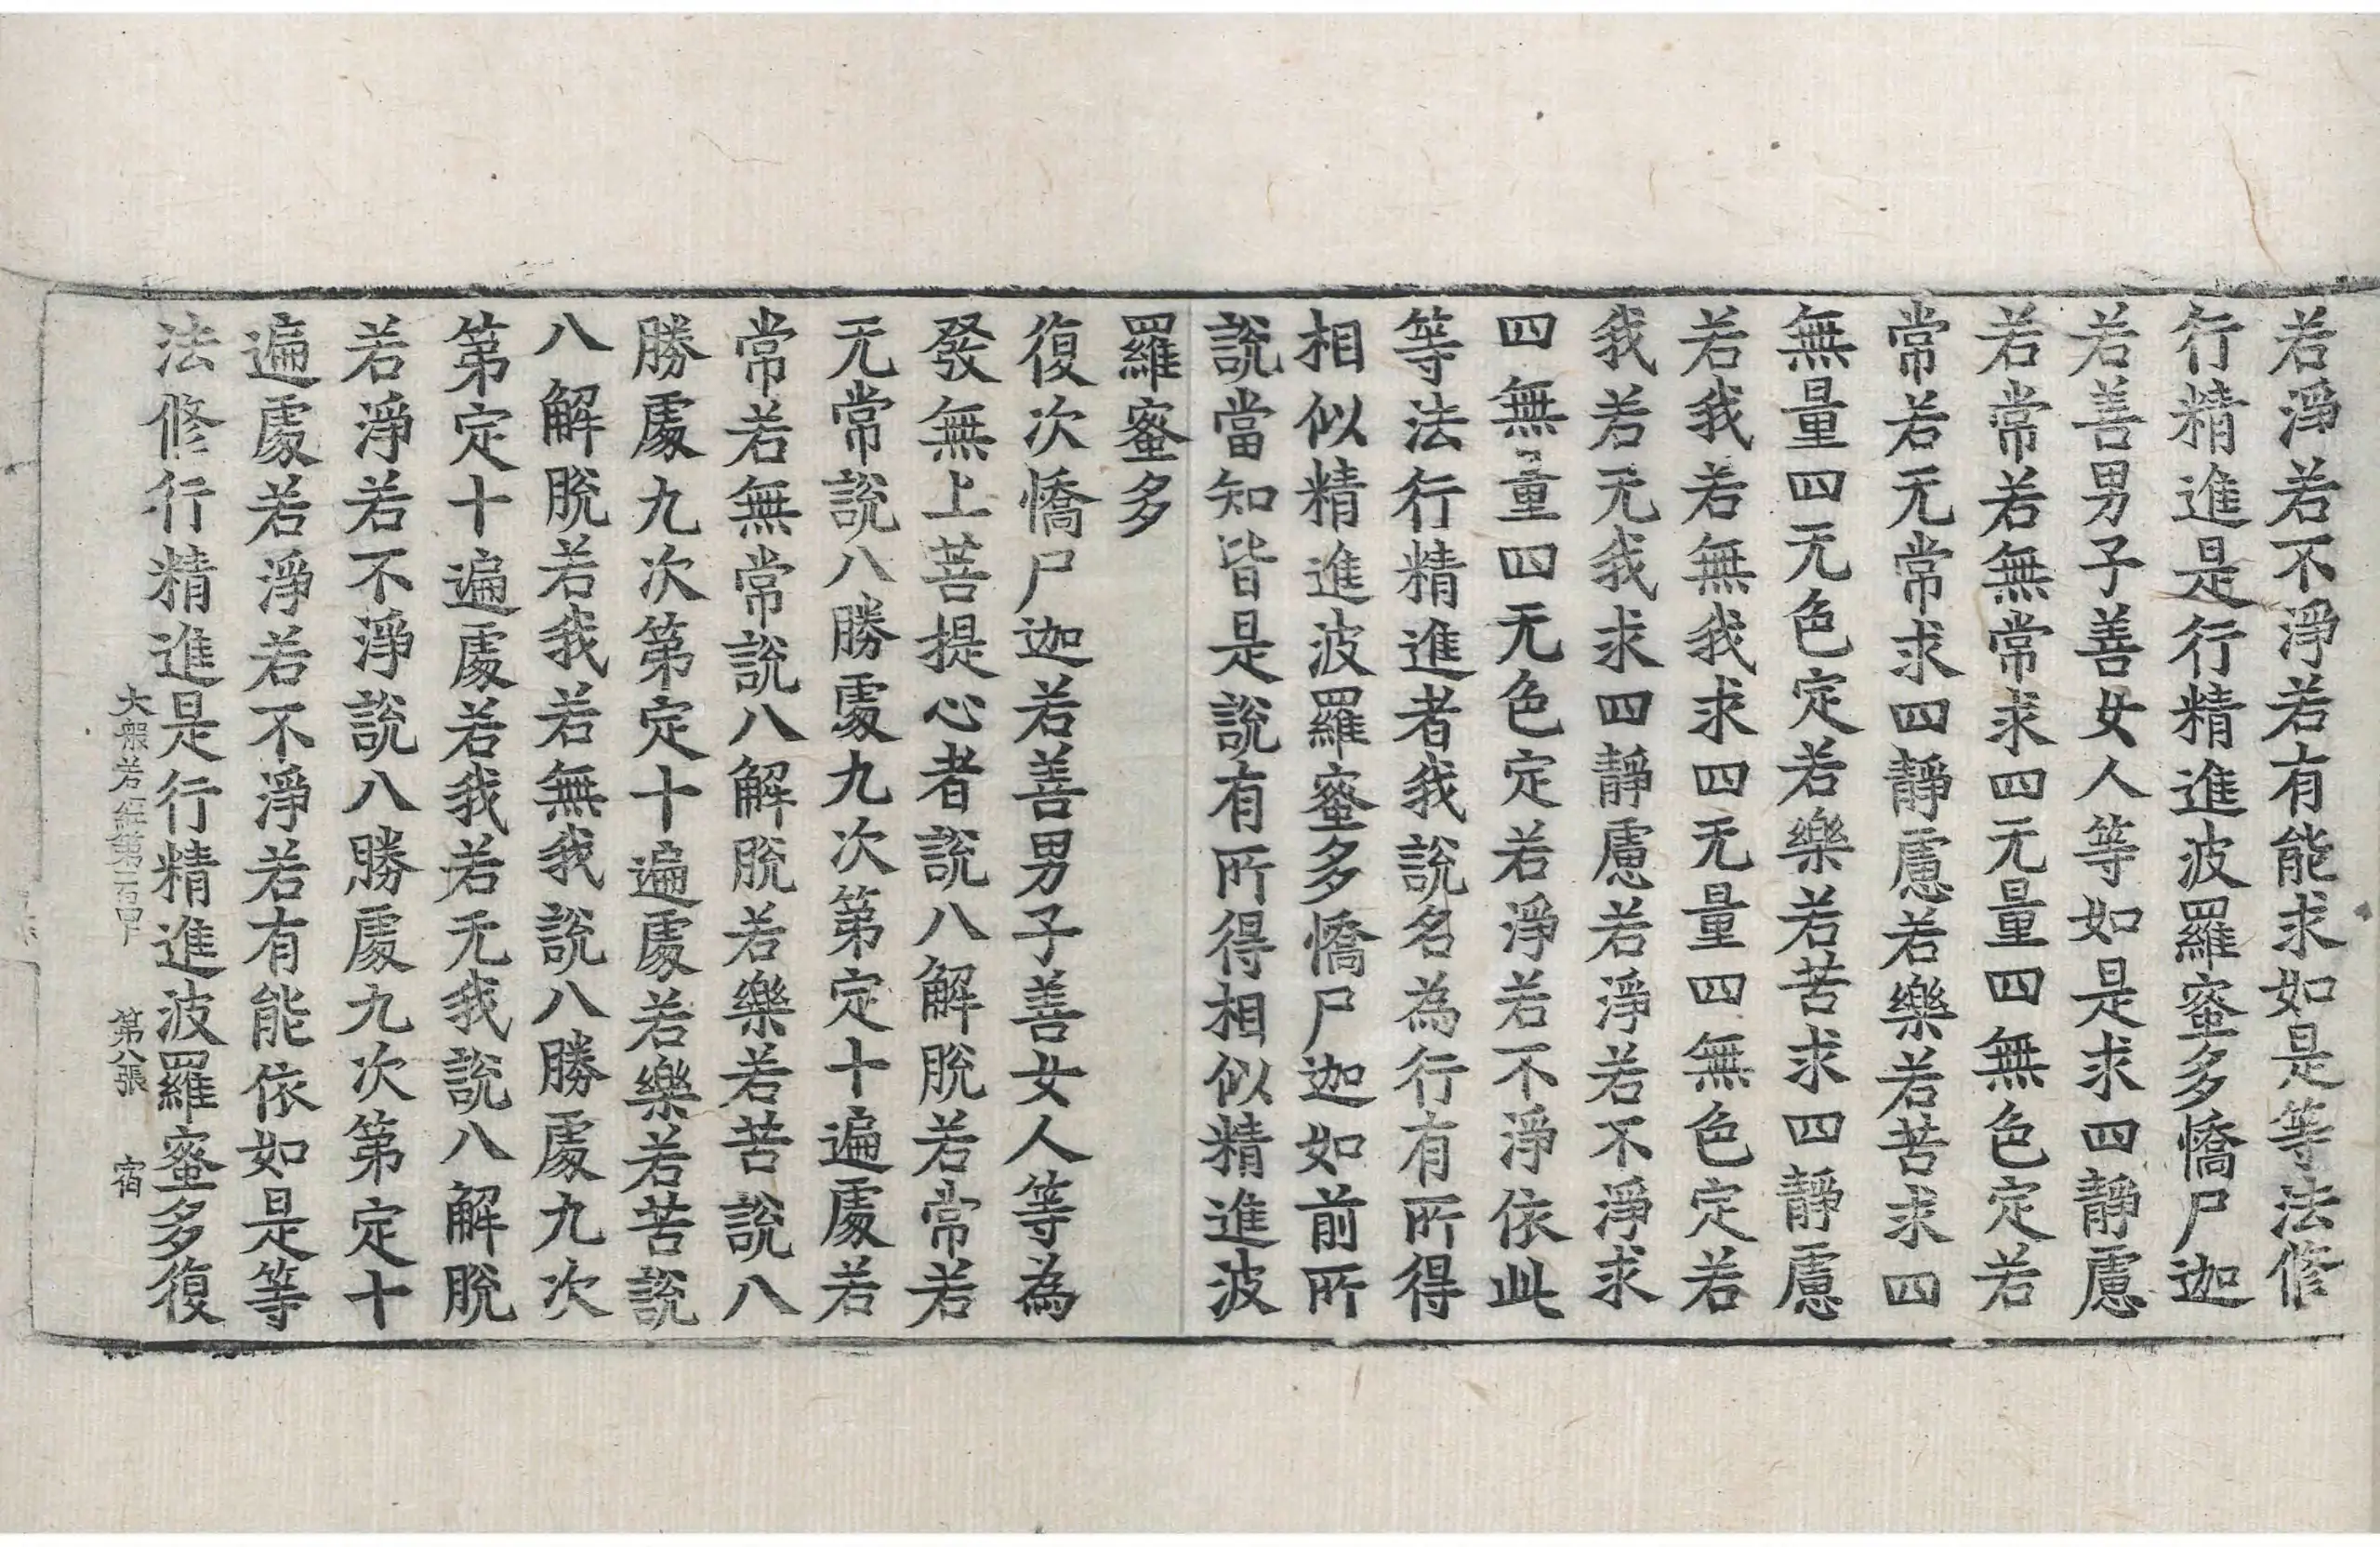 若淨若不淨若有能求如是等法修
行精進是行精進波羅蜜多憍尸迦
若善男子善女人等如是求四靜慮
若常若無常求四无量四無色定若
常若无常求四靜慮若樂若苦求四
無量四无色定若樂若苦求四靜慮
若我若無我求四无量四無色定若
我若无我求四靜慮若淨若不淨求
四無量四无色定若淨若不淨依此
等法行精進者我說名為行有所得
相似精進波羅蜜多憍尸迦如前所
說當知皆是說有所得相似精進波
羅蜜多
復次憍尸迦若善男子善女人等為
發無上菩提心者說八解脫若常若
无常說八勝處九次第定十遍處若
常若無常說八解脫若樂若苦說八
勝處九次第定十遍處若樂若苦說
八解脫若我若無我說八勝處九次
第定十遍處若我若无我說八解脫
若淨若不淨說八勝處九次第定十
遍處若淨若不淨若有能依如是等
法修行精進是行精進波羅蜜多復
大般若經第一百四 第八張 宿